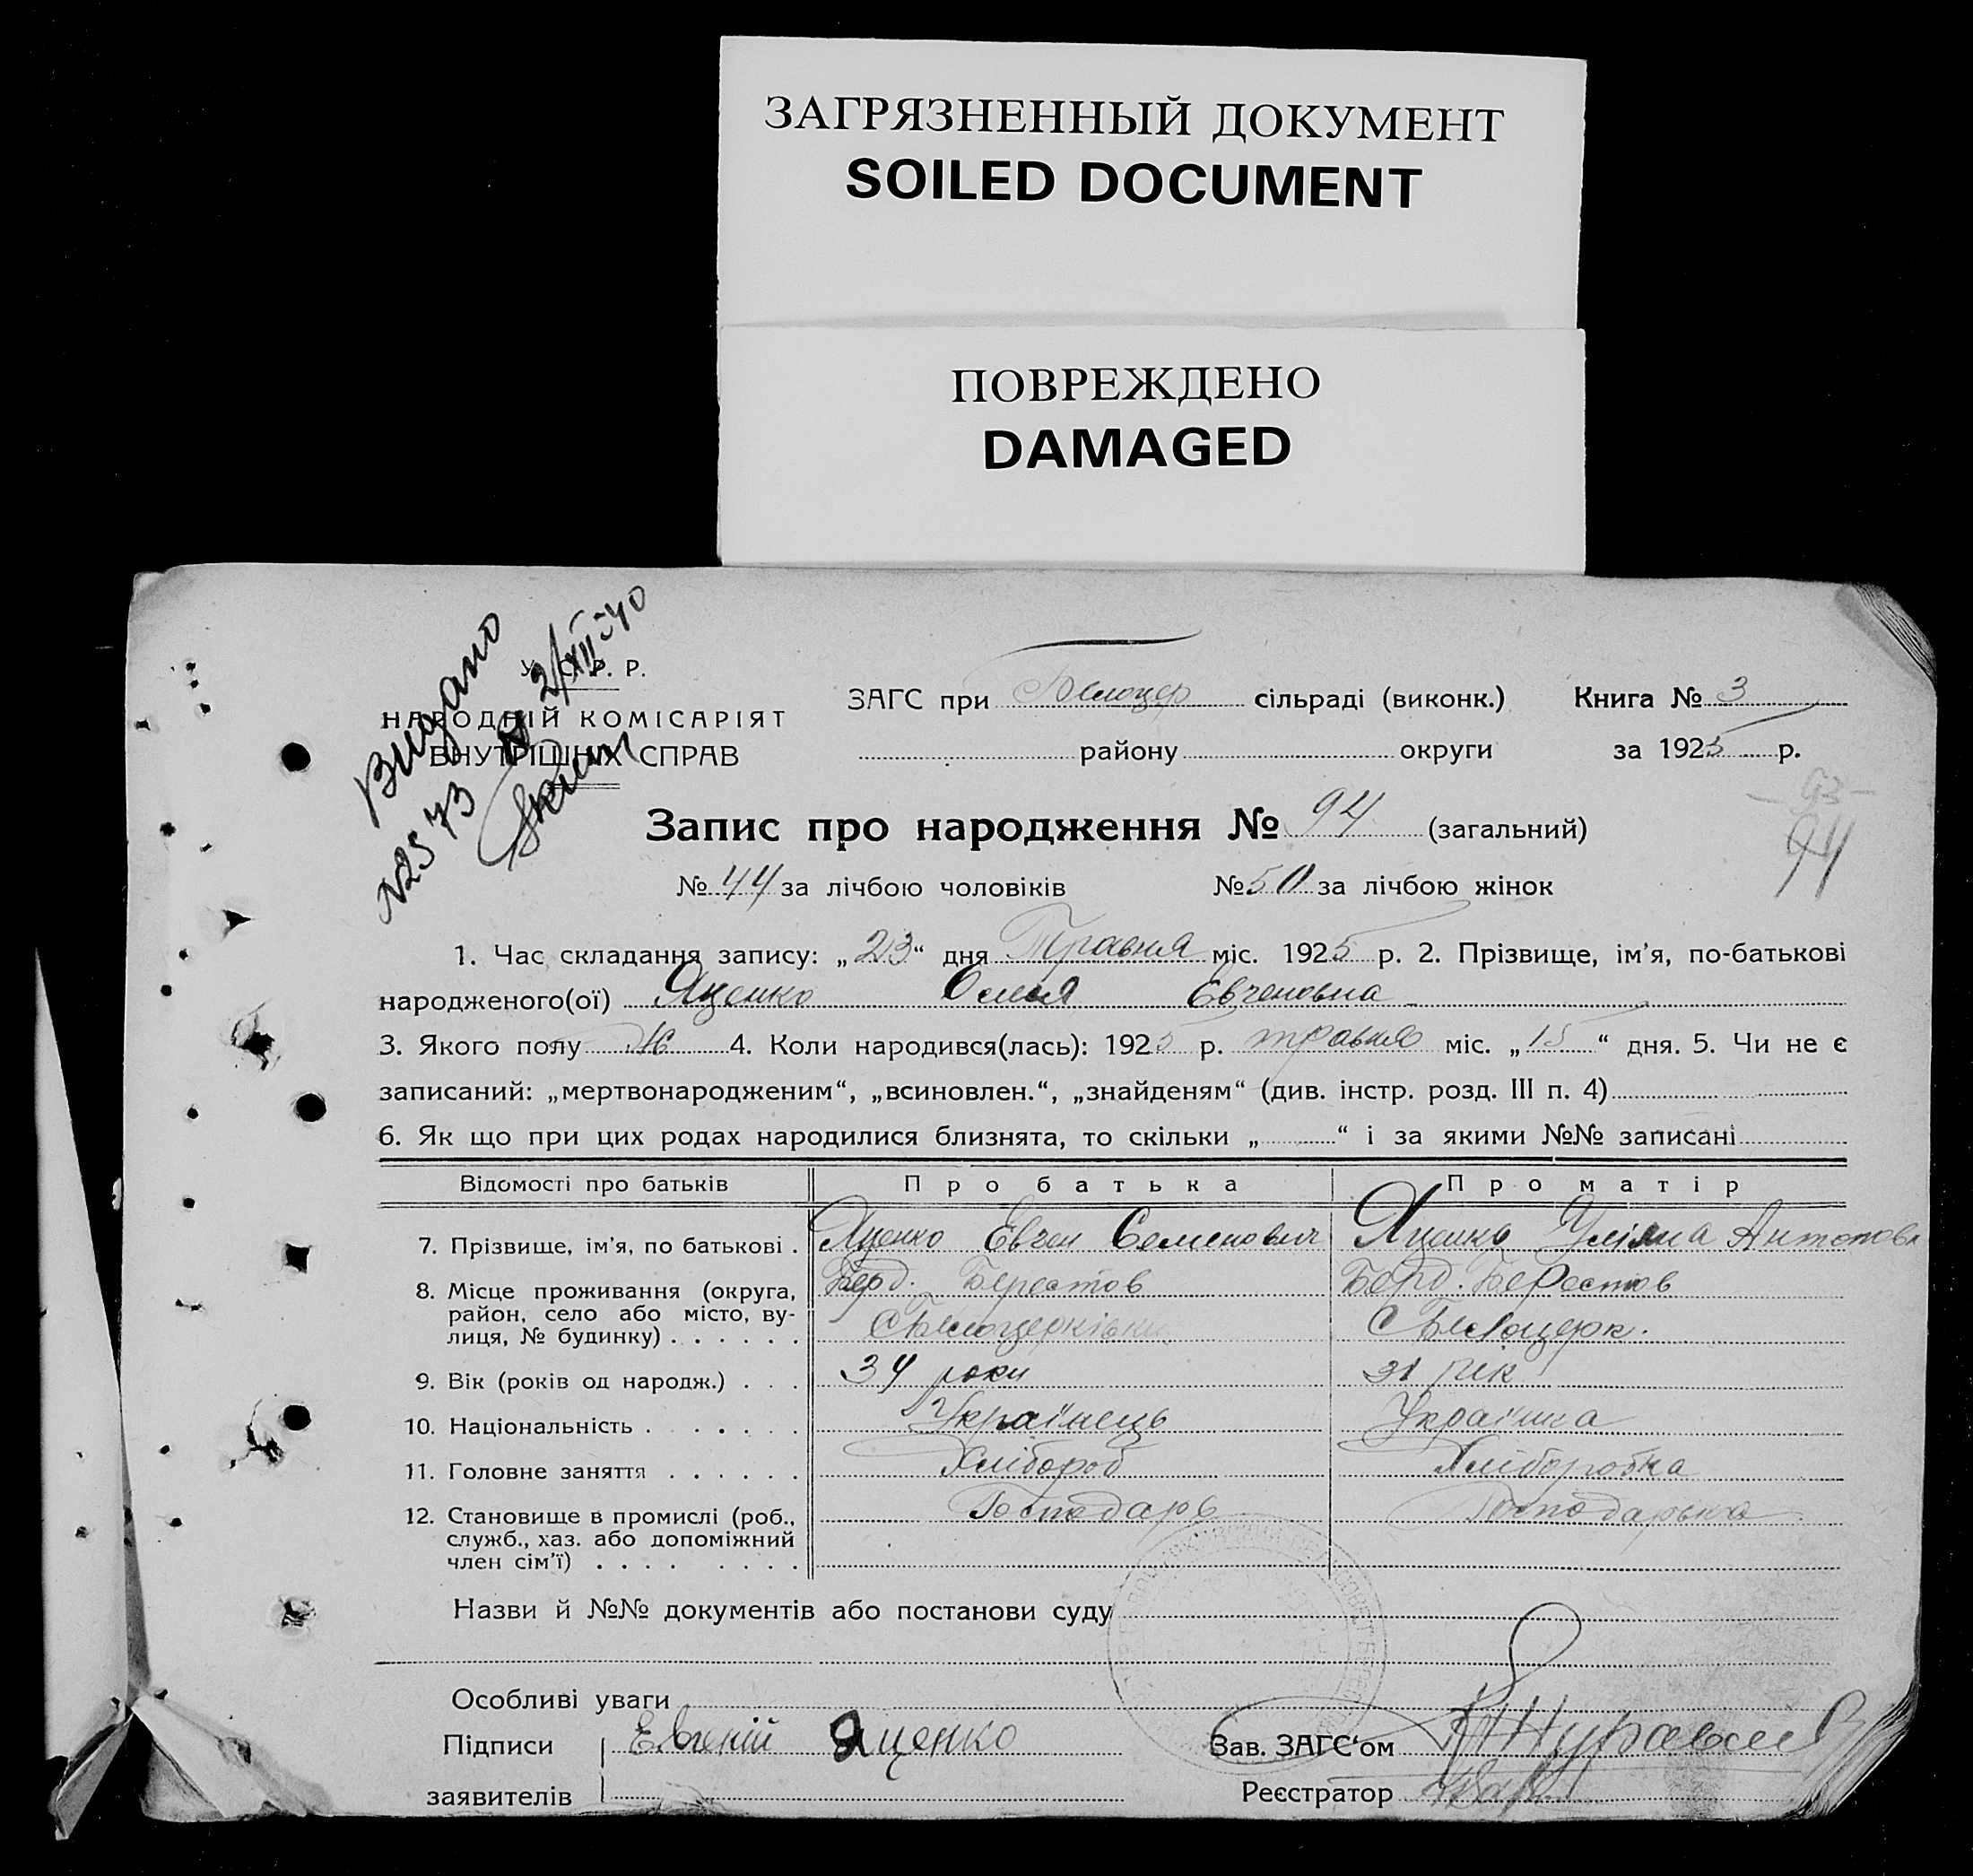 ЗАГРЯЗНЕННЫЙ ДОКУМЕНТ
SOILED DOCUMENT
ПОВРЕЖДЕНО
DAMAGED
Видано
№2573 2/XII-40
У. С. Р. Р.
НАРОДНІЙ КОМІСАРІЯТ
ВНУТРІШНІХ СПРАВ
ЗАГС при Белоцер сільраді (виконк.) Книга № 3
району округи за 1925 р.
Запис про народження № 94 (загальний)
93
94
№ 44 за лічбою чоловіків № 50 за лічбою жінок
1. Час складання запису: „23“ дня Травня міс. 1925 р. 2. Прізвище, ім’я, по-батькові
народженого(ої) Яценко Евгеновна
3. Якого полу Ж 4. Коли народився(лась): 1925 р. травня міс. „15“ дня. 5. Чи не є
записаний: „мертвонародженим“, „всиновлен.“, „знайденям“ (див. інстр. розд. III п. 4)
6. Як що при цих родах народилися близнята, то скільки „ “ і за якими №№ записані
Відомості про батьків Про батька Про матір
7. Прізвище, ім’я, по батькові . Яценко Евген Семенович Яценко Уліяна Антоновн
8. Місце проживання (округа, Берд. Берестов Берд. Берестов
район, село або місто, ву-
лиця, № будинку) . . . . . . С Белоцерківка С Белоцерк.
9. Вік (років од народж.) . . . 34 роки 31 рік
10. Національність . . . . . . Українець Українка
11. Головне заняття . . . . . . Хлібороб Хліборобка
12. Становище в промислі (роб., Господарь Господарька
служб., хаз. або допоміжний
член сім’ї) . . . . . . . .
Назви й №№ документів або постанови суду
Особливі уваги
Підписи Евгеній Яценко Зав. ЗАГС‘ом
заявителів Реєстратор